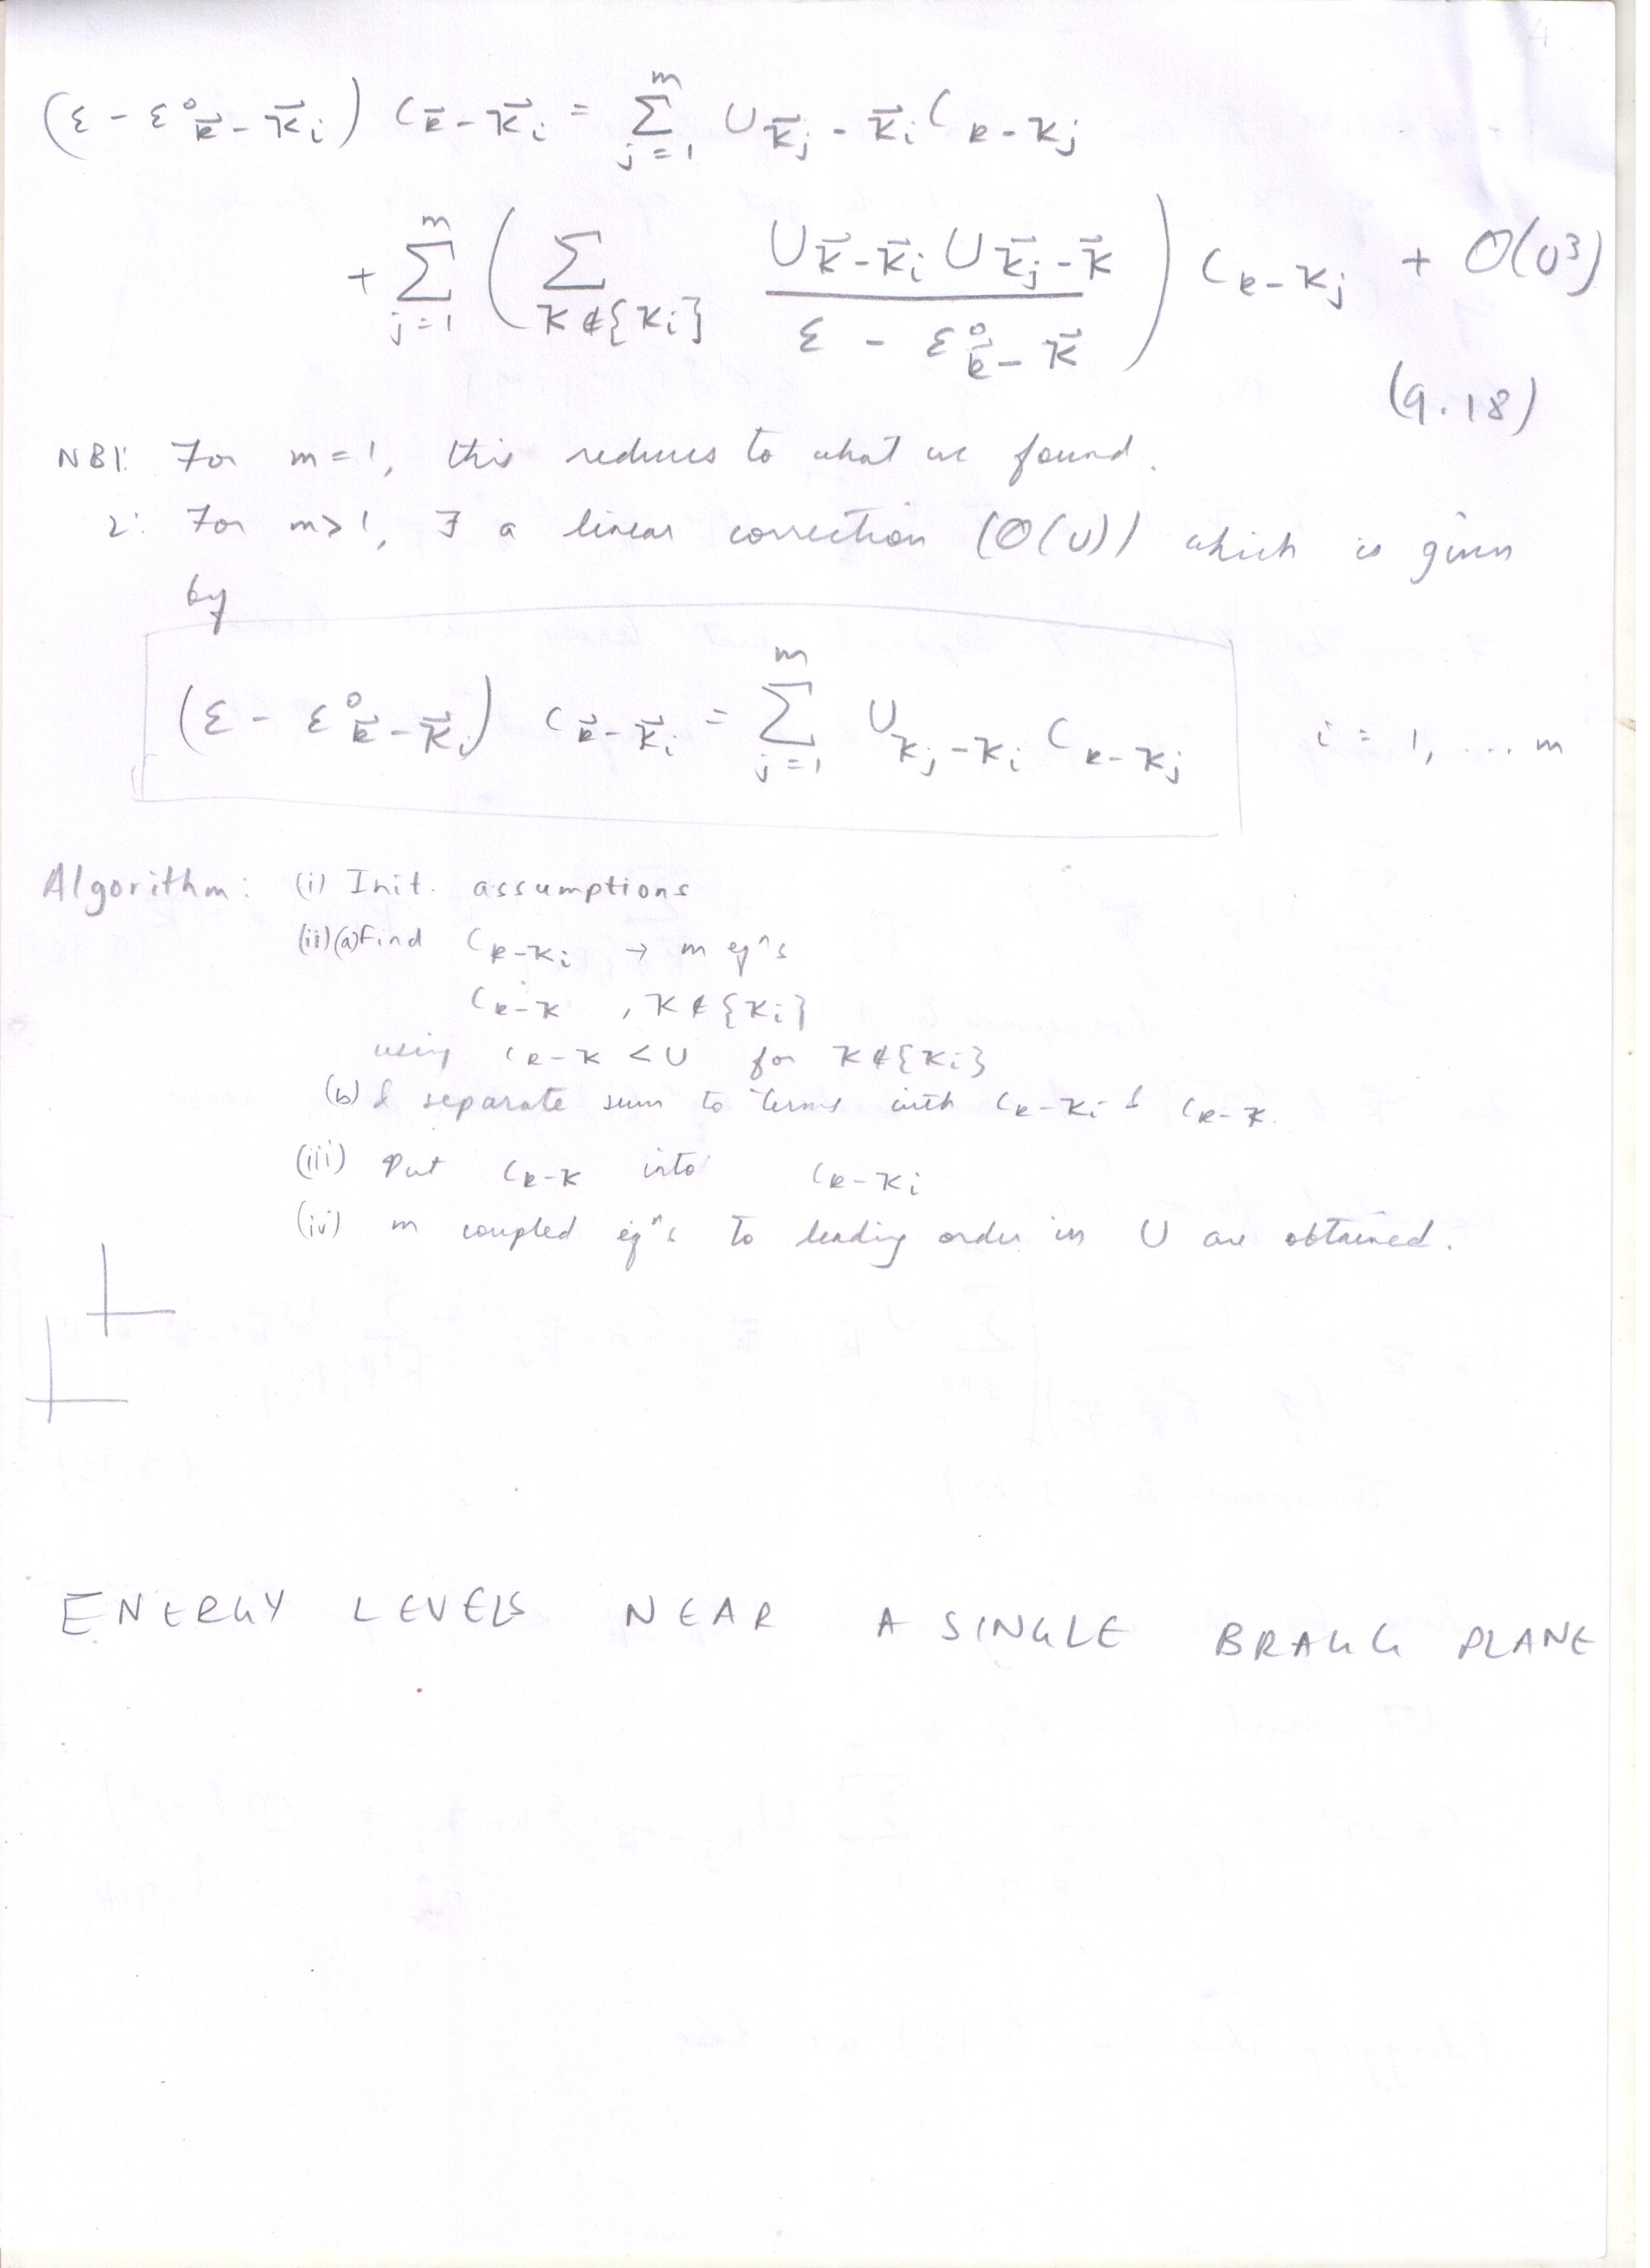 (ε - ε⁰_{k⃗-K⃗_i}) C_{k⃗-K⃗_i} = Σ_{j=1}^{m} U_{K⃗_j-K⃗_i} C_{k-K_j}
+ Σ_{j=1}^{m} ( Σ_{K∉{K_i}} U_{K⃗-K⃗_i} U_{K⃗_j-K⃗} / ε - ε⁰_{k⃗-K⃗} ) C_{k-K_j} + O(U³)
(9.18)
NB1: For m=1, this reduces to what we found.
2: For m>1, ∃ a linear correction (O(U)) which is given
by
(ε - ε⁰_{k⃗-K⃗_i}) C_{k⃗-K⃗_i} = Σ_{j=1}^{m} U_{K_j-K_i} C_{k-K_j} i = 1, ... m
Algorithm: (i) Init. assumptions
(ii)(a) Find C_{k-K_i} → m eqⁿs
C_{k-K} , K∉{K_i}
using C_{k-K} < U for K∉{K_i}
(b) & separate sum to terms with C_{k-K_i} & C_{k-K}.
(iii) Put C_{k-K} into C_{k-K_i}
(iv) m coupled eqⁿs to leading order in U are obtained.
ENERGY LEVELS NEAR A SINGLE BRAGG PLANE